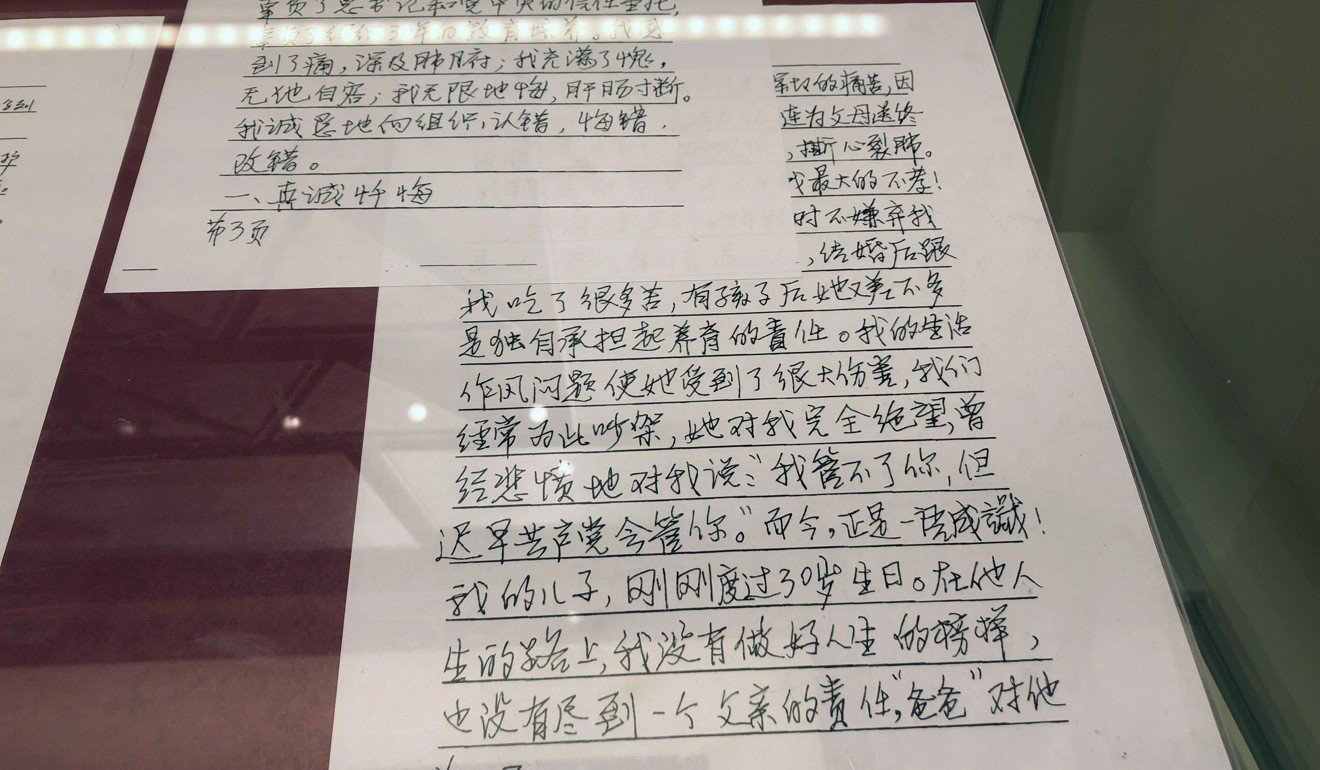 辜负了总书记和党中央的信任重托,
辜负了组织多年的教育培养。我感
到了痛,深及肺腑;我充满了愧,
无地自容;我无限地悔,肝肠寸断。
我诚恳地向组织认错,悔错,
改错。
一、真诚忏悔
第3页
的痛苦,因
连为父母送终
,撕心裂肺。
我最大的不孝!
时不嫌弃我
,结婚后跟
我吃了很多苦,有孩子后她差不多
是独自承担起养育的責任。我的生活
作风问题使她受到了很大伤害,我们
经常为此吵架,她对我完全绝望,曾
经悲愤地对我说:“我管不了你,但
迟早共产党会管你。”而今,正是一语成讖!
我的儿子,刚刚度过30岁生日。在他人
生的路上,我没有做好人生的榜样,
也没有尽到一个父亲的责任,“爸爸”对他